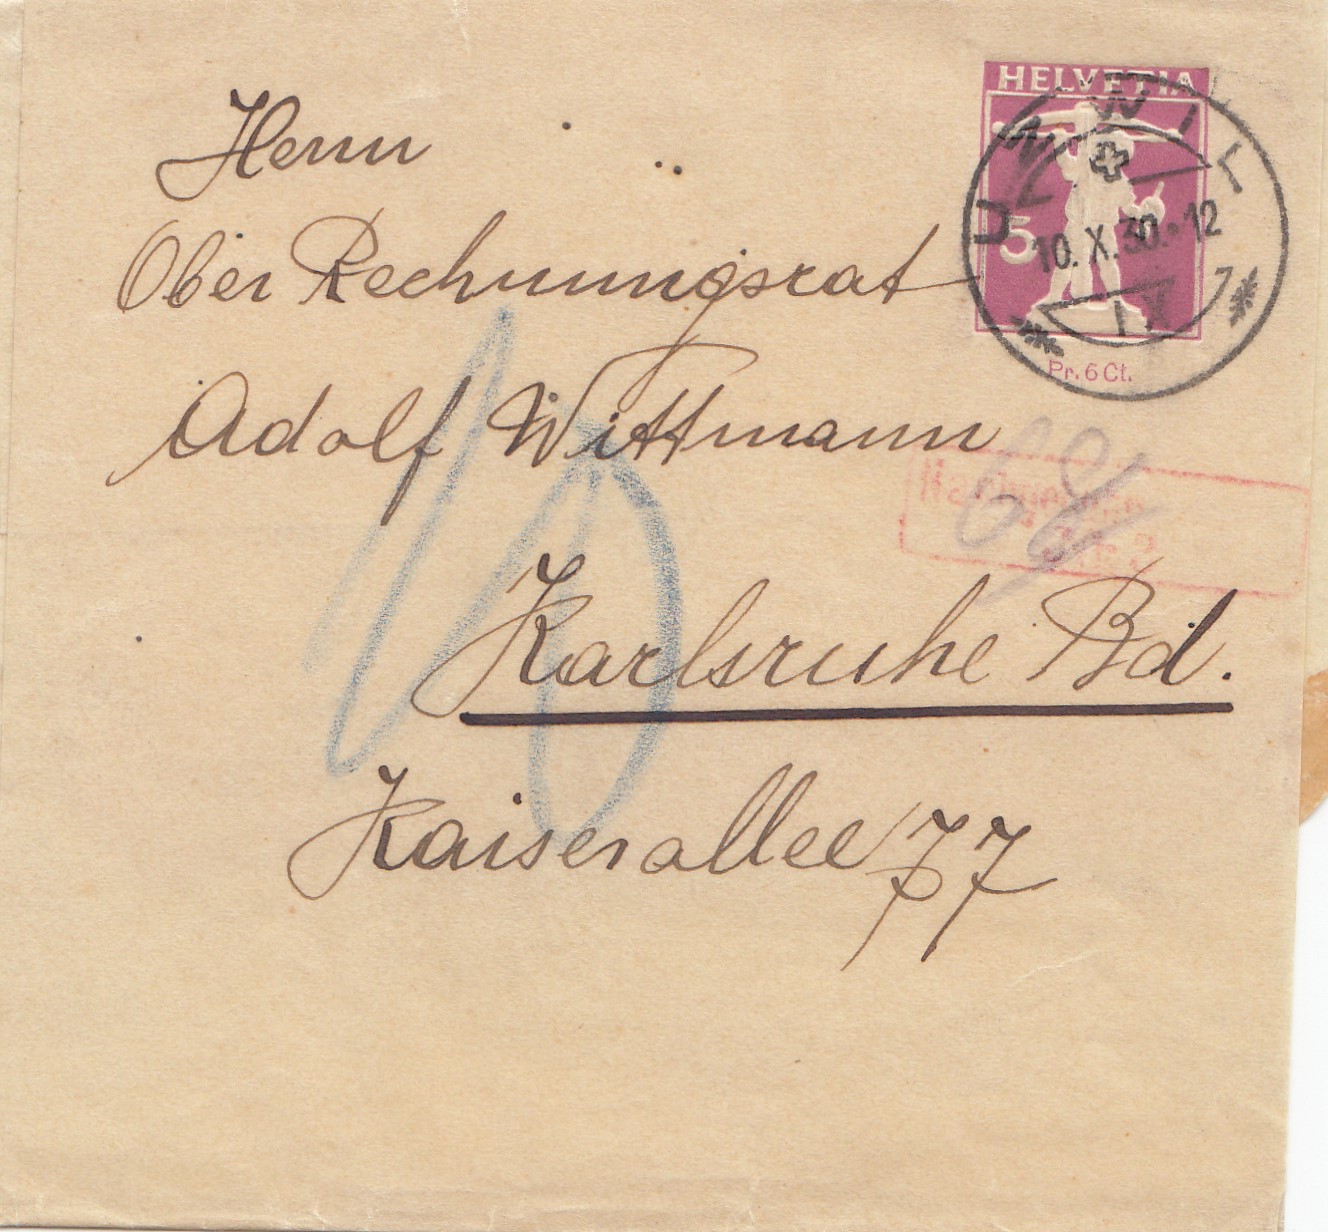 HELVETIA
UNWIL
5
10. X. 30. 12
IX
Pr. 6 Ct.
Herrn
Ober Rechnungsrat
Adolf Wittmann
68
10
Karlsruhe Bd.
Kaiserallee 77